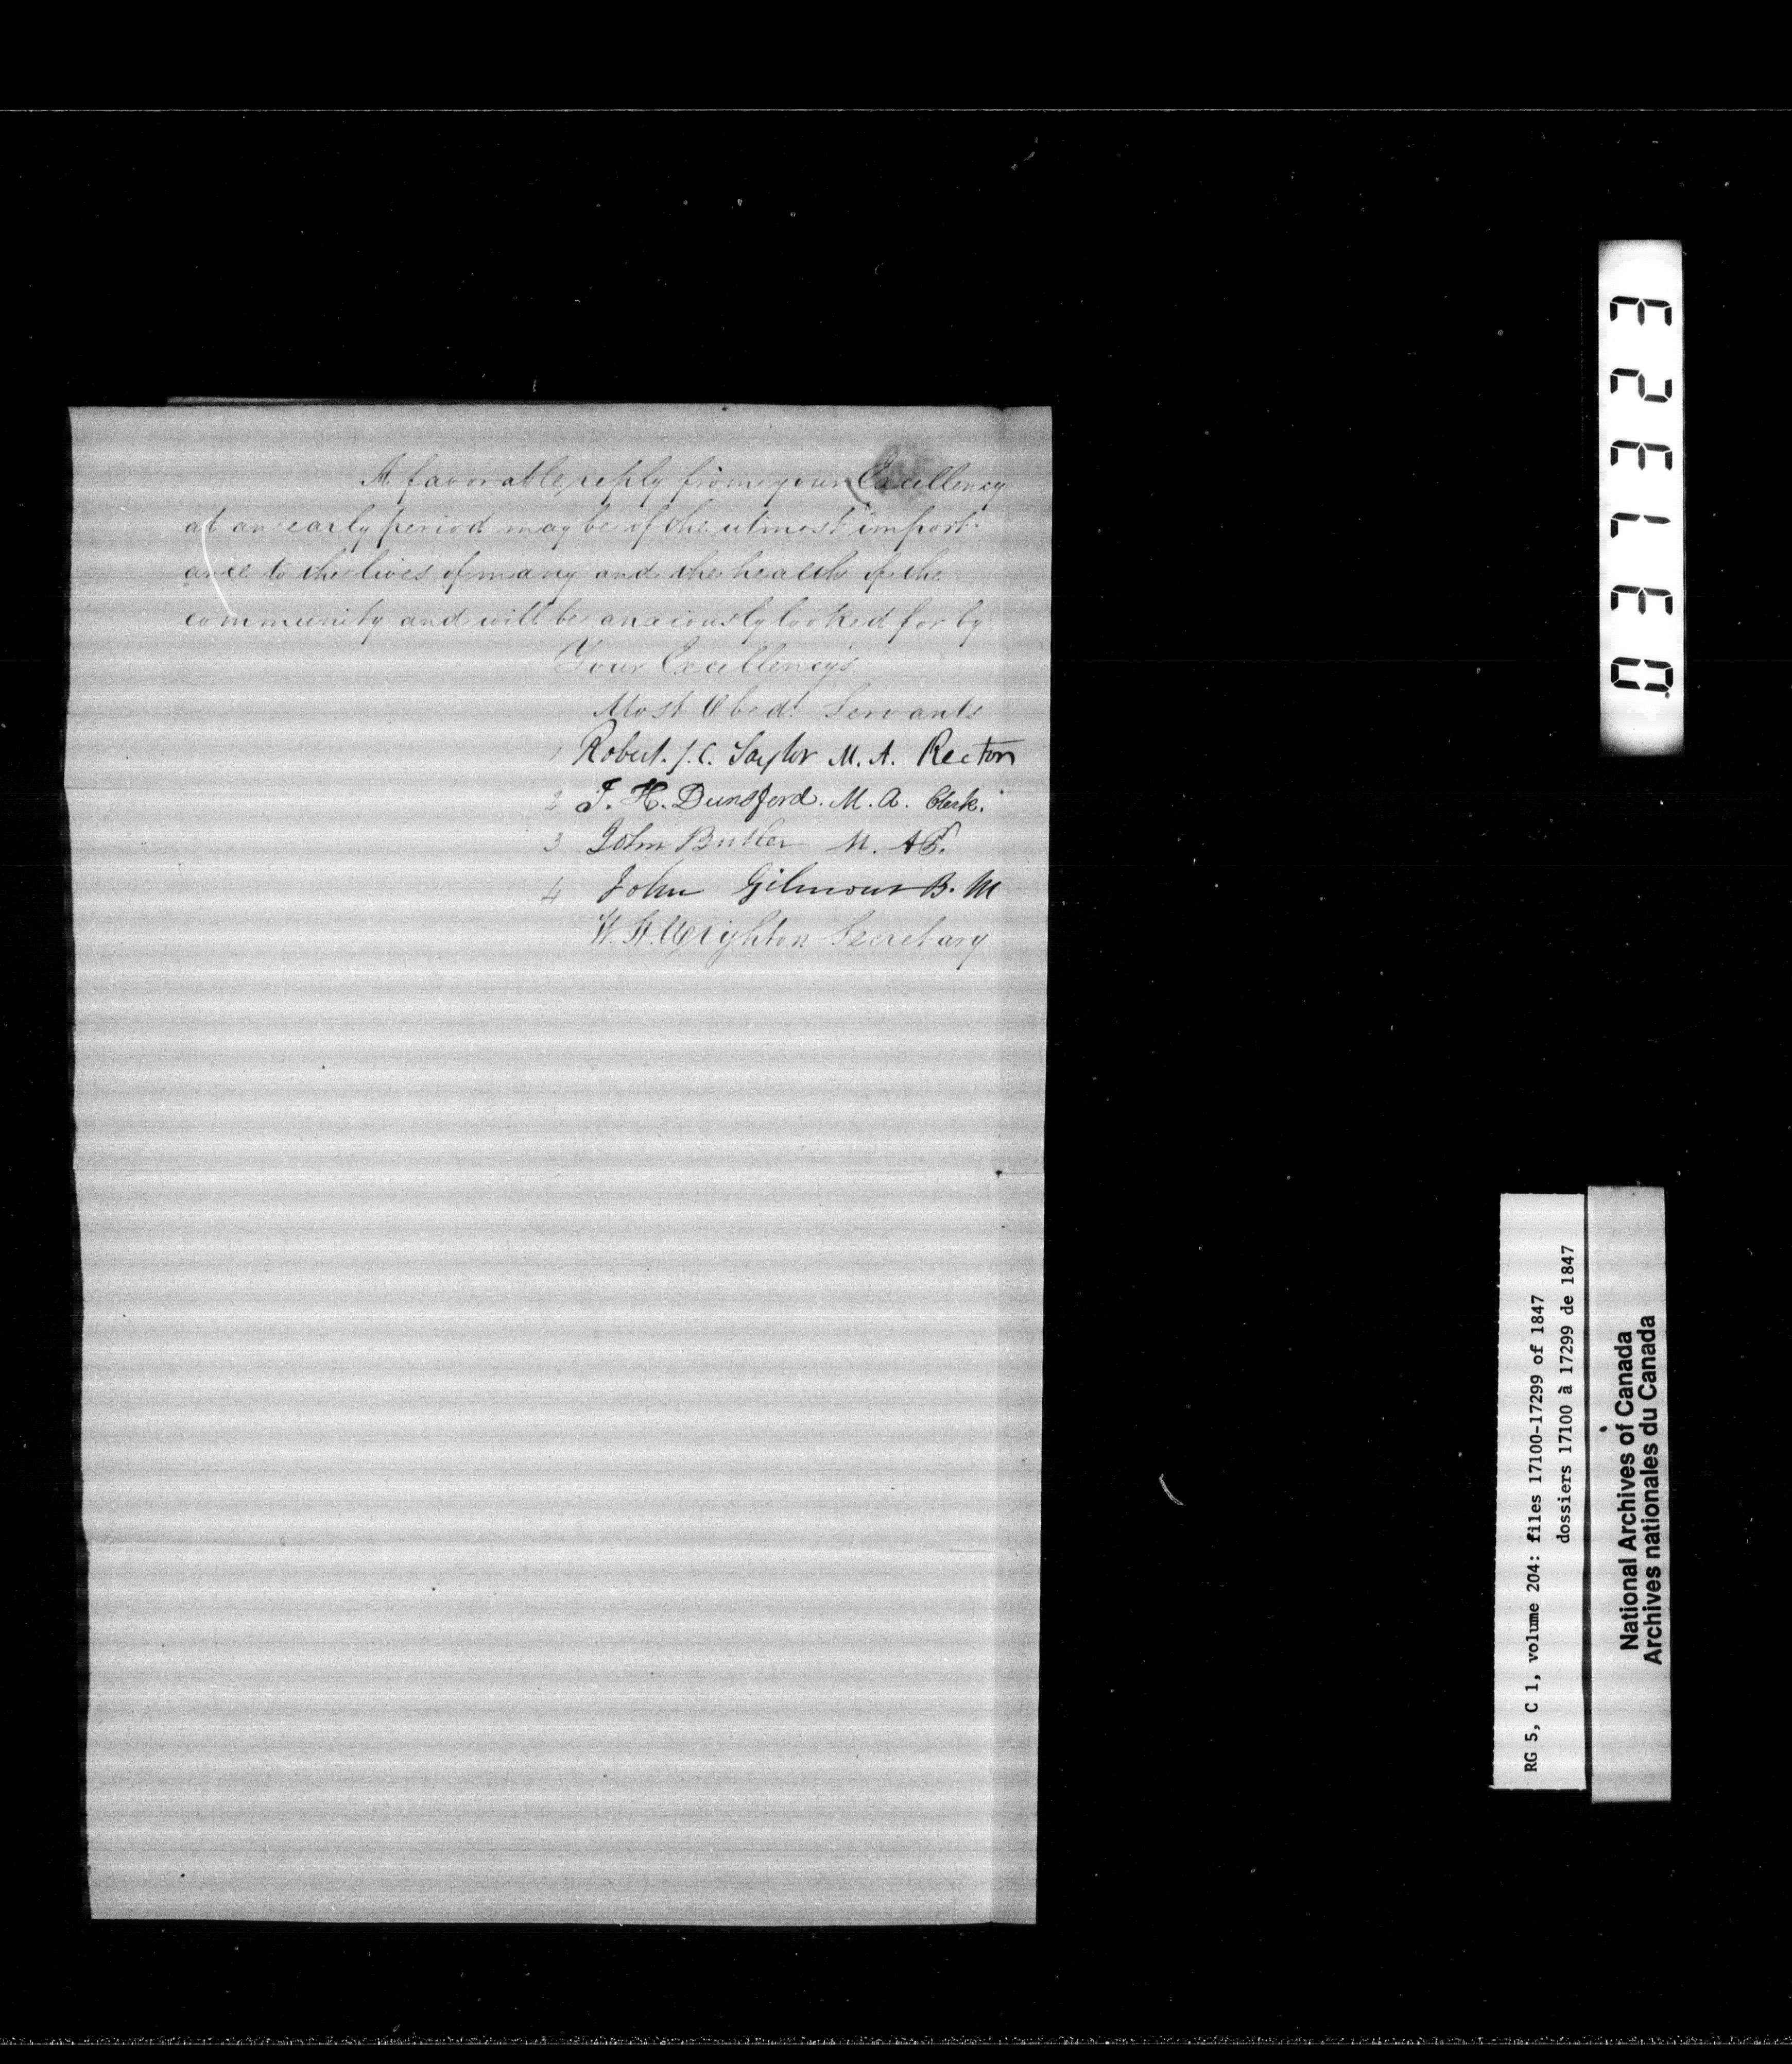 A favorable reply from your Excellency
at an early period may be of the utmost import-
ance to the lives of many and the health of the
community and will be anxiously looked for by
Your Excellency's
Most Obedt Servants
1 Robert J. C. Taylor M. A. Rector
2 J. H. Dunsford. M. A. Clerk.
3 John Butler M.
4 John Gilmour B. M
W. H. Wrighton Secretary
031323
RG 5, C 1, volume 204: files 17100-17299 of 1847
dossiers 17100 à 17299 de 1847
National Archives of Canada
Archives nationales du Canada